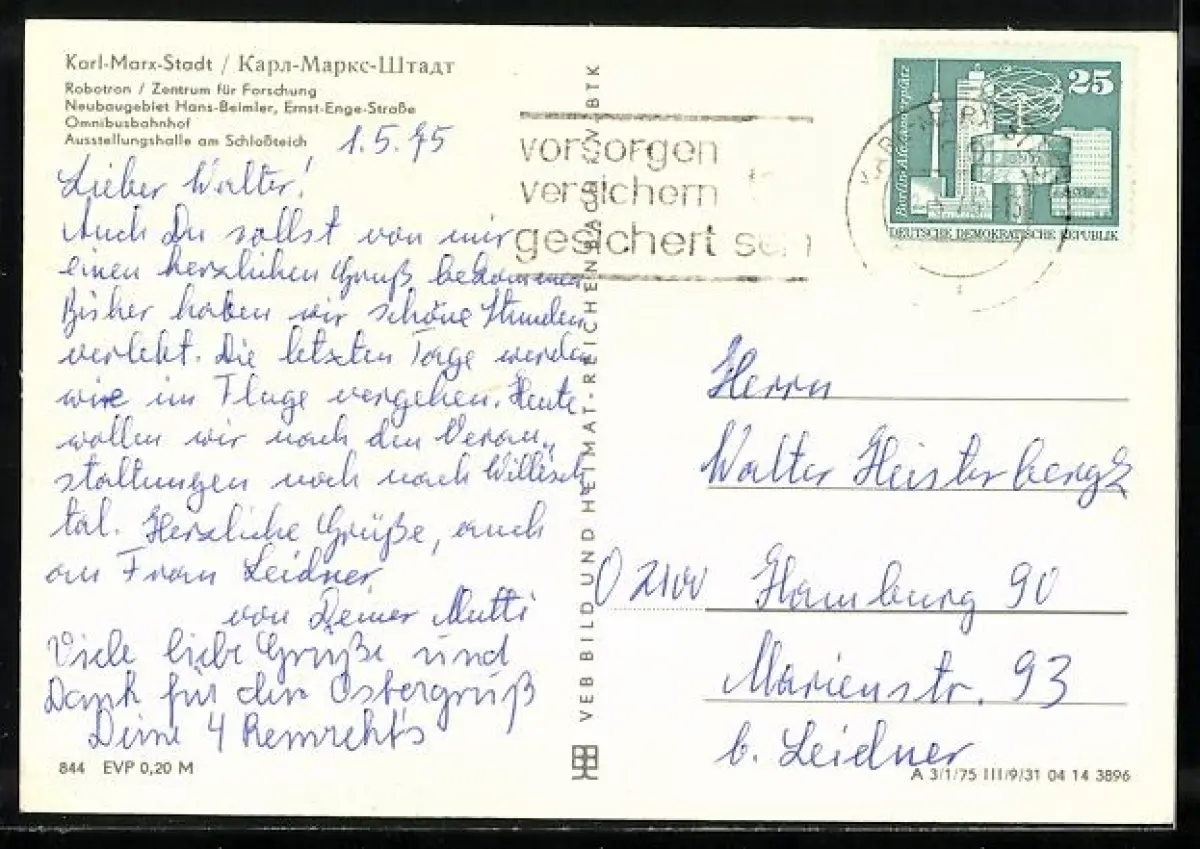 Karl-Marx-Stadt / Карл-Маркс-Штадт
Robotron / Zentrum für Forschung
Neubaugebiet Hans-Beimler, Ernst-Enge-Straße
Omnibusbahnhof
Ausstellungshalle am Schloßteich
1.5.75
Lieber Walter!
Auch Du sollst von mir
einen herzlichen Gruß bekommen
Bisher haben wir schöne Stunden
verlebt. Die letzten Tage werden
wie im Fluge vergehen. Heute
wollen wir nach den Veran„
staltungen noch nach Willisch
tal. Herzliche Grüße, auch
an Frau Leidner
von Deiner Mutti
Viele liebe Grüße und
Dank für den Ostergruß
Deine 4
844 EVP 0,20 M
VEB BILD UND HEIMAT · REICHENBACH IN BTK
vorsorgen
versichern
gesichert sein
25
Berlin-Alexanderplatz
DEUTSCHE DEMOKRATISCHE REPUBLIK
Herrn
Walter Heisterbergk
2100 Hamburg 90
Marienstr. 93
b. Leidner
A 3/1/75 III/9/31 04 14 3896